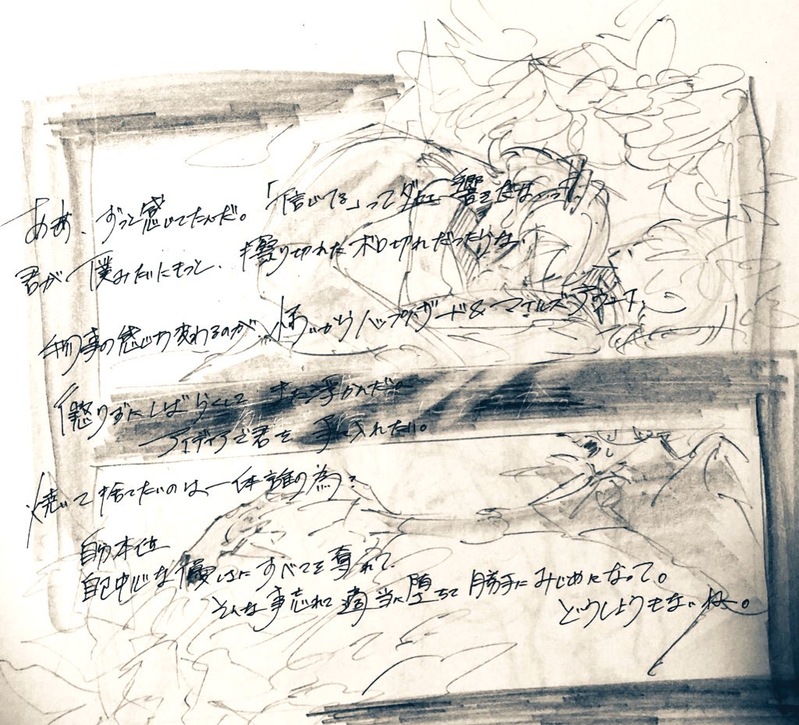 ああ、ずっと感じてたんだ。「信じてる」って 響きだなって
君が 僕みたいにもっと、擦り切れたボロ切れだったらな、
物事の感じ方変わるのが ハップハザード&マイルズ
懲りずにしばらくして また浮かんだ
アイディアで君を 手に入れたい。
焼いて捨てたいのは、一体誰の為?
自分本位
自己中心な優しさにすべてを奪われて
そんな事忘れて 適当に堕ちて 勝手にみじめになって。
どうしようもないね。